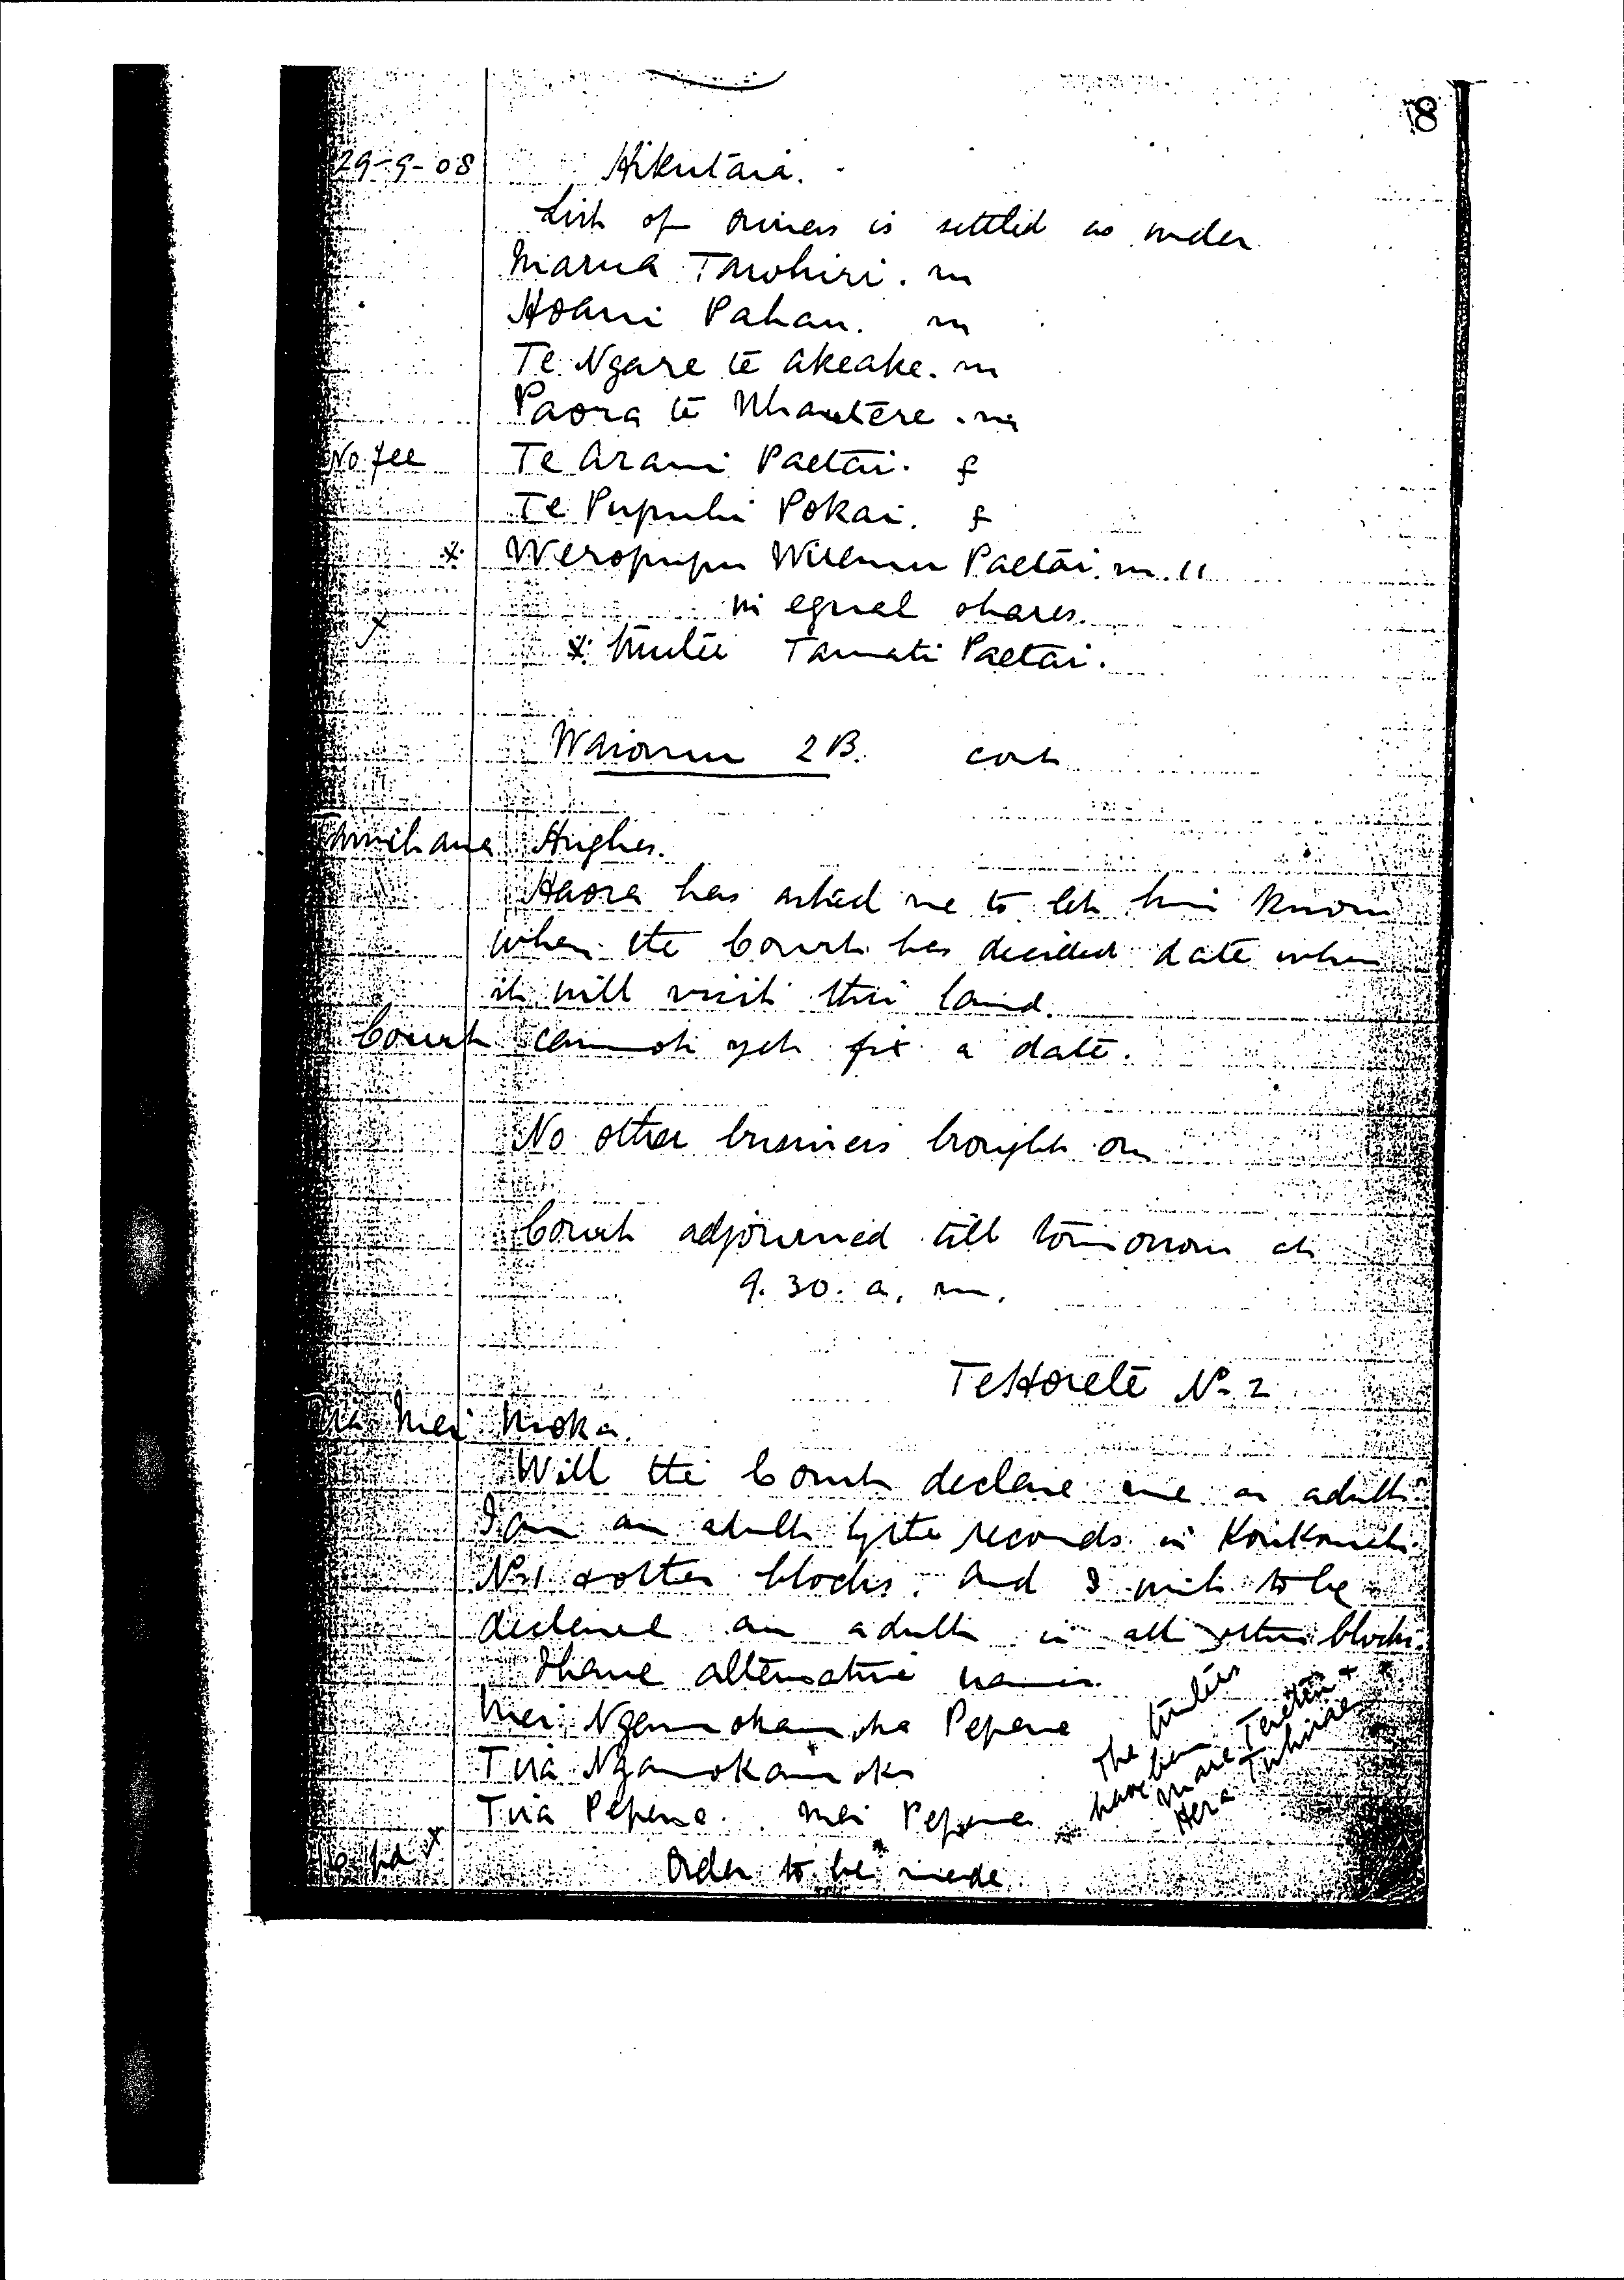 8
29-9-08 Hikutaia.
List of owners is settled as under
Marua Tawhiri. m
Hoani Pahau. m
Te Ngare te Akeake. m
Paora te Whautere. m
No fee Te Arani Paetai. f
Te Pupuhi Pokai. f
x Weropupu Wiremu Paetai. m. 11
in equal shares.
x Trustee Tamati Paetai.
Waionui 2B. cont
Tamihana Hughes.
Haora has asked me to let him know
when the Court has decided date when
it will visit this land.
Court cannot yet fix a date.
No other business brought on
Court adjourned till tomorrow at
9.30. a. m.
Te Horete No 2
Mei Moka.
Will the Court declare me an adult
I am an adult by the records in
No 1 & other blocks. And I wish to be
declared an adult in all other blocks.
I have alternative names.
Mei Pepene
Tiria
Tiria Pepene. Mei Pepene
The trustees
have been
Mare Teretiu &
Hera Tuhirae
pd x Order to be made